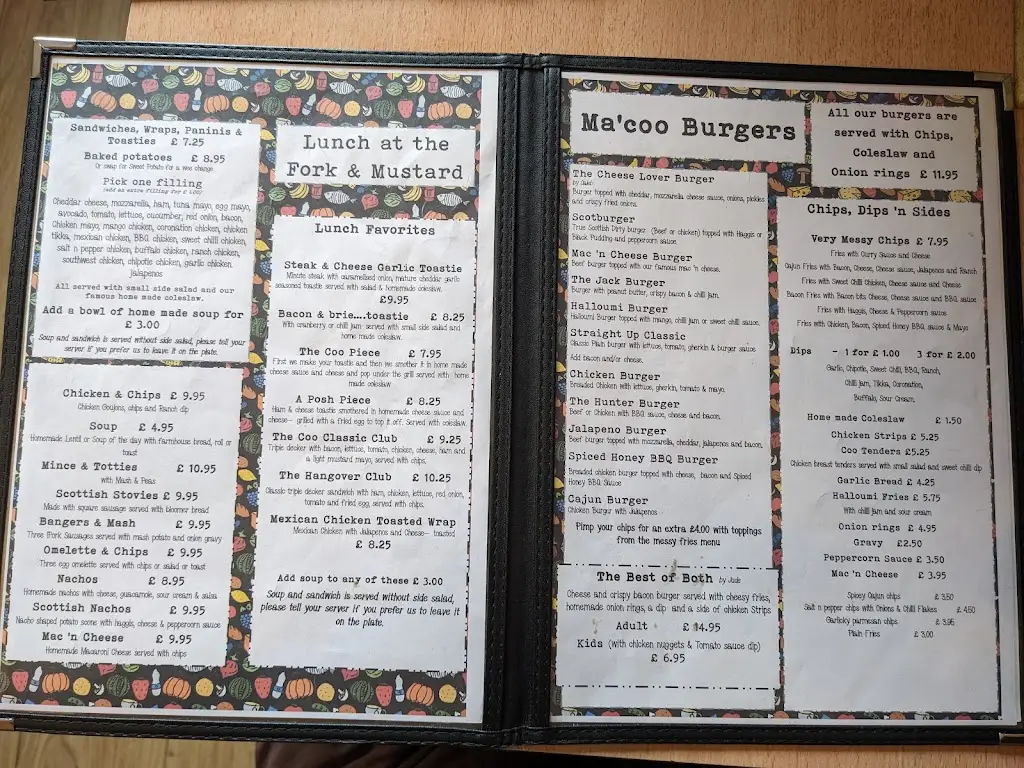 Sandwiches, Wraps, Paninis &
Toasties £ 7.25
Baked potatoes £ 8.95
Or swap for Sweet Potato for a wee change
Pick one filling
(add an extra filling for £ 1.00)
Cheddar cheese, mozzarella, ham, tuna mayo, egg mayo,
avocado, tomato, lettuce, cucumber, red onion, bacon,
Chicken mayo, mango chicken, coronation chicken, chicken
tikka, mexican chicken, BBQ chicken, sweet chilli chicken,
salt n pepper chicken, buffalo chicken, ranch chicken,
southwest chicken, chipotle chicken, garlic chicken,
jalapenos
All served with small side salad and our
famous home made coleslaw.
Add a bowl of home made soup for
£ 3.00
Soup and sandwich is served without side salad, please tell your
server if you prefer us to leave it on the plate.
Chicken & Chips £ 9.95
Chicken Goujons, chips and Ranch dip
Soup £ 4.95
Homemade Lentil or Soup of the day with farmhouse bread, roll or
toast
Mince & Totties £ 10.95
with Mash & Peas
Scottish Stovies £ 9.95
Made with square sausage served with bloomer bread
Bangers & Mash £ 9.95
Three Pork Sausages served with mash potato and onion gravy
Omelette & Chips £ 9.95
Three egg omelette served with chips or salad or toast
Nachos £ 8.95
Homemade nachos with cheese, guacamole, sour cream & salsa
Scottish Nachos £ 9.95
Nacho shaped potato scone with haggis, cheese & peppercorn sauce
Mac 'n Cheese £ 9.95
Homemade Macaroni Cheese served with chips
Lunch at the
Fork & Mustard
Lunch Favorites
Steak & Cheese Garlic Toastie
Minute steak with caramelised onion, mature cheddar garlic
seasoned toastie served with salad & homemade coleslaw.
£9.95
Bacon & brie....toastie £ 8.25
With cranberry or chilli jam served with small side salad and
home made coleslaw.
The Coo Piece £ 7.95
First we make your toastie and then we smother it in home made
cheese sauce and cheese and pop under the grill served with home
made coleslaw
A Posh Piece £ 8.25
Ham & cheese toastie smothered in homemade cheese sauce and
cheese— grilled with a fried egg to top it off. Served with coleslaw.
The Coo Classic Club £ 9.25
Triple decker with bacon, lettuce, tomato, chicken, cheese, ham and
a light mustard mayo, served with chips.
The Hangover Club £ 10.25
Classic triple decker sandwich with ham, chicken, lettuce, red onion,
tomato and fried egg, served with chips.
Mexican Chicken Toasted Wrap
Mexican Chicken with Jalapenos and Cheese— toasted
£ 8.25
Add soup to any of these £ 3.00
Soup and sandwich is served without side salad,
please tell your server if you prefer us to leave it
on the plate.
Ma'coo Burgers
All our burgers are
served with Chips,
Coleslaw and
Onion rings £ 11.95
The Cheese Lover Burger
by Jude
Burger topped with cheddar, mozzarella cheese sauce, onions, pickles
and crispy fried onions.
Scotburger
True Scottish Dirty burger. (Beef or chicken) topped with Haggis or
Black Pudding and peppercorn sauce.
Mac 'n Cheese Burger
Beef burger topped with our famous mac 'n cheese.
The Jack Burger
Burger with peanut butter, crispy bacon & chilli jam.
Halloumi Burger
Halloumi Burger topped with mango, chilli jam or sweet chilli sauce.
Straight Up Classic
Classic Plain burger with lettuce, tomato, gherkin & burger sauce
Add bacon and/or cheese.
Chicken Burger
Breaded Chicken with lettuce, gherkin, tomato & mayo.
The Hunter Burger
Beef or Chicken with BBQ sauce, cheese and bacon.
Jalapeno Burger
Beef burger topped with mozzarella, cheddar, jalapenos and bacon.
Spiced Honey BBQ Burger
Breaded chicken burger topped with cheese, bacon and Spiced
Honey BBQ Sauce
Cajun Burger
Chicken Burger with Jalapenos
Pimp your chips for an extra £4.00 with toppings
from the messy fries menu
The Best of Both by Jude
Cheese and crispy bacon burger served with cheesy fries,
homemade onion rings, a dip and a side of chicken Strips
Adult £ 14.95
Kids (with chicken nuggets & Tomato sauce dip)
£ 6.95
Chips, Dips 'n Sides
Very Messy Chips £ 7.95
Fries with Curry Sauce and Cheese
Cajun Fries with Bacon, Cheese, Cheese sauce, Jalapenos and Ranch
Fries with Sweet Chilli Chicken, Cheese sauce and Cheese
Bacon Fries with Bacon bits Cheese, Cheese sauce and BBQ sauce
Fries with Haggis, Cheese & Peppercorn sauce
Fries with Chicken, Bacon, Spiced Honey BBQ sauce & Mayo
Dips - 1 for £ 1.00 3 for £ 2.00
Garlic, Chipotle, Sweet Chilli, BBQ, Ranch,
Chilli Jam, Tikka, Coronation,
Buffalo, Sour Cream.
Home made Coleslaw £ 1.50
Chicken Strips £ 5.25
Coo Tenders £5.25
Chicken breast tenders served with small salad and sweet chilli dip
Garlic Bread £ 4.25
Halloumi Fries £ 5.75
With chilli jam and sour cream
Onion rings £ 4.95
Gravy £2.50
Peppercorn Sauce £ 3.50
Mac 'n Cheese £ 3.95
Spicey Cajun chips £ 3.50
Salt n pepper chips with Onions & Chilli Flakes £ 4.50
Garlicky parmesan chips £ 3.95
Plain Fries £ 3.00